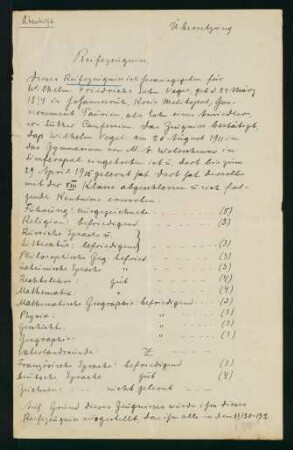 Abschrift
Übersetzung
Reifezeugnis.
Dieses Reifezeugnis ist herausgegeben für
Wilhelm Friedrichs Sohn Vogel, geb. d. 21 März
in Johannesruh, Kreis Melitopol, Gou-
vernement Taurien, als Sohn eines Ansiedlers
der Luther Confession. Das Zeugnis bestätigt,
dass Wilhelm Vogel am 20 August 1911 in
das Gymnasium von M. A. Woloschenko in
Simferopol eingetreten ist u. dort bis zum
29 April gelernt hat. Dort hat derselbe
mit der VIII Klasse abgeschlossen u. sich fol-
gende Kentnisse erworben:
Führung: ausgezeichnet (5)
Religion: befriedigend (3)
Russische Sprache u.
Litteratur: befriedigend (3)
Philosophische befried. (3)
Lateinische Sprache " (3)
Rechtslehre: Gut (4)
Mathematik: " (4)
Mathematische Geographie: befriedigend (3)
Physik: " (3)
Geschicht: " (3)
Geographie:
Vaterlandskunde:
Französische Sprache: befriedigend (3)
Deutsche Sprache Gut (4)
Zeichnen: nicht gelernt
Auf Grund dieses Zeugnisses wurde ihm dieses
Reifezeugnis ausgestellt, das ihm alle in den §§ 130-132